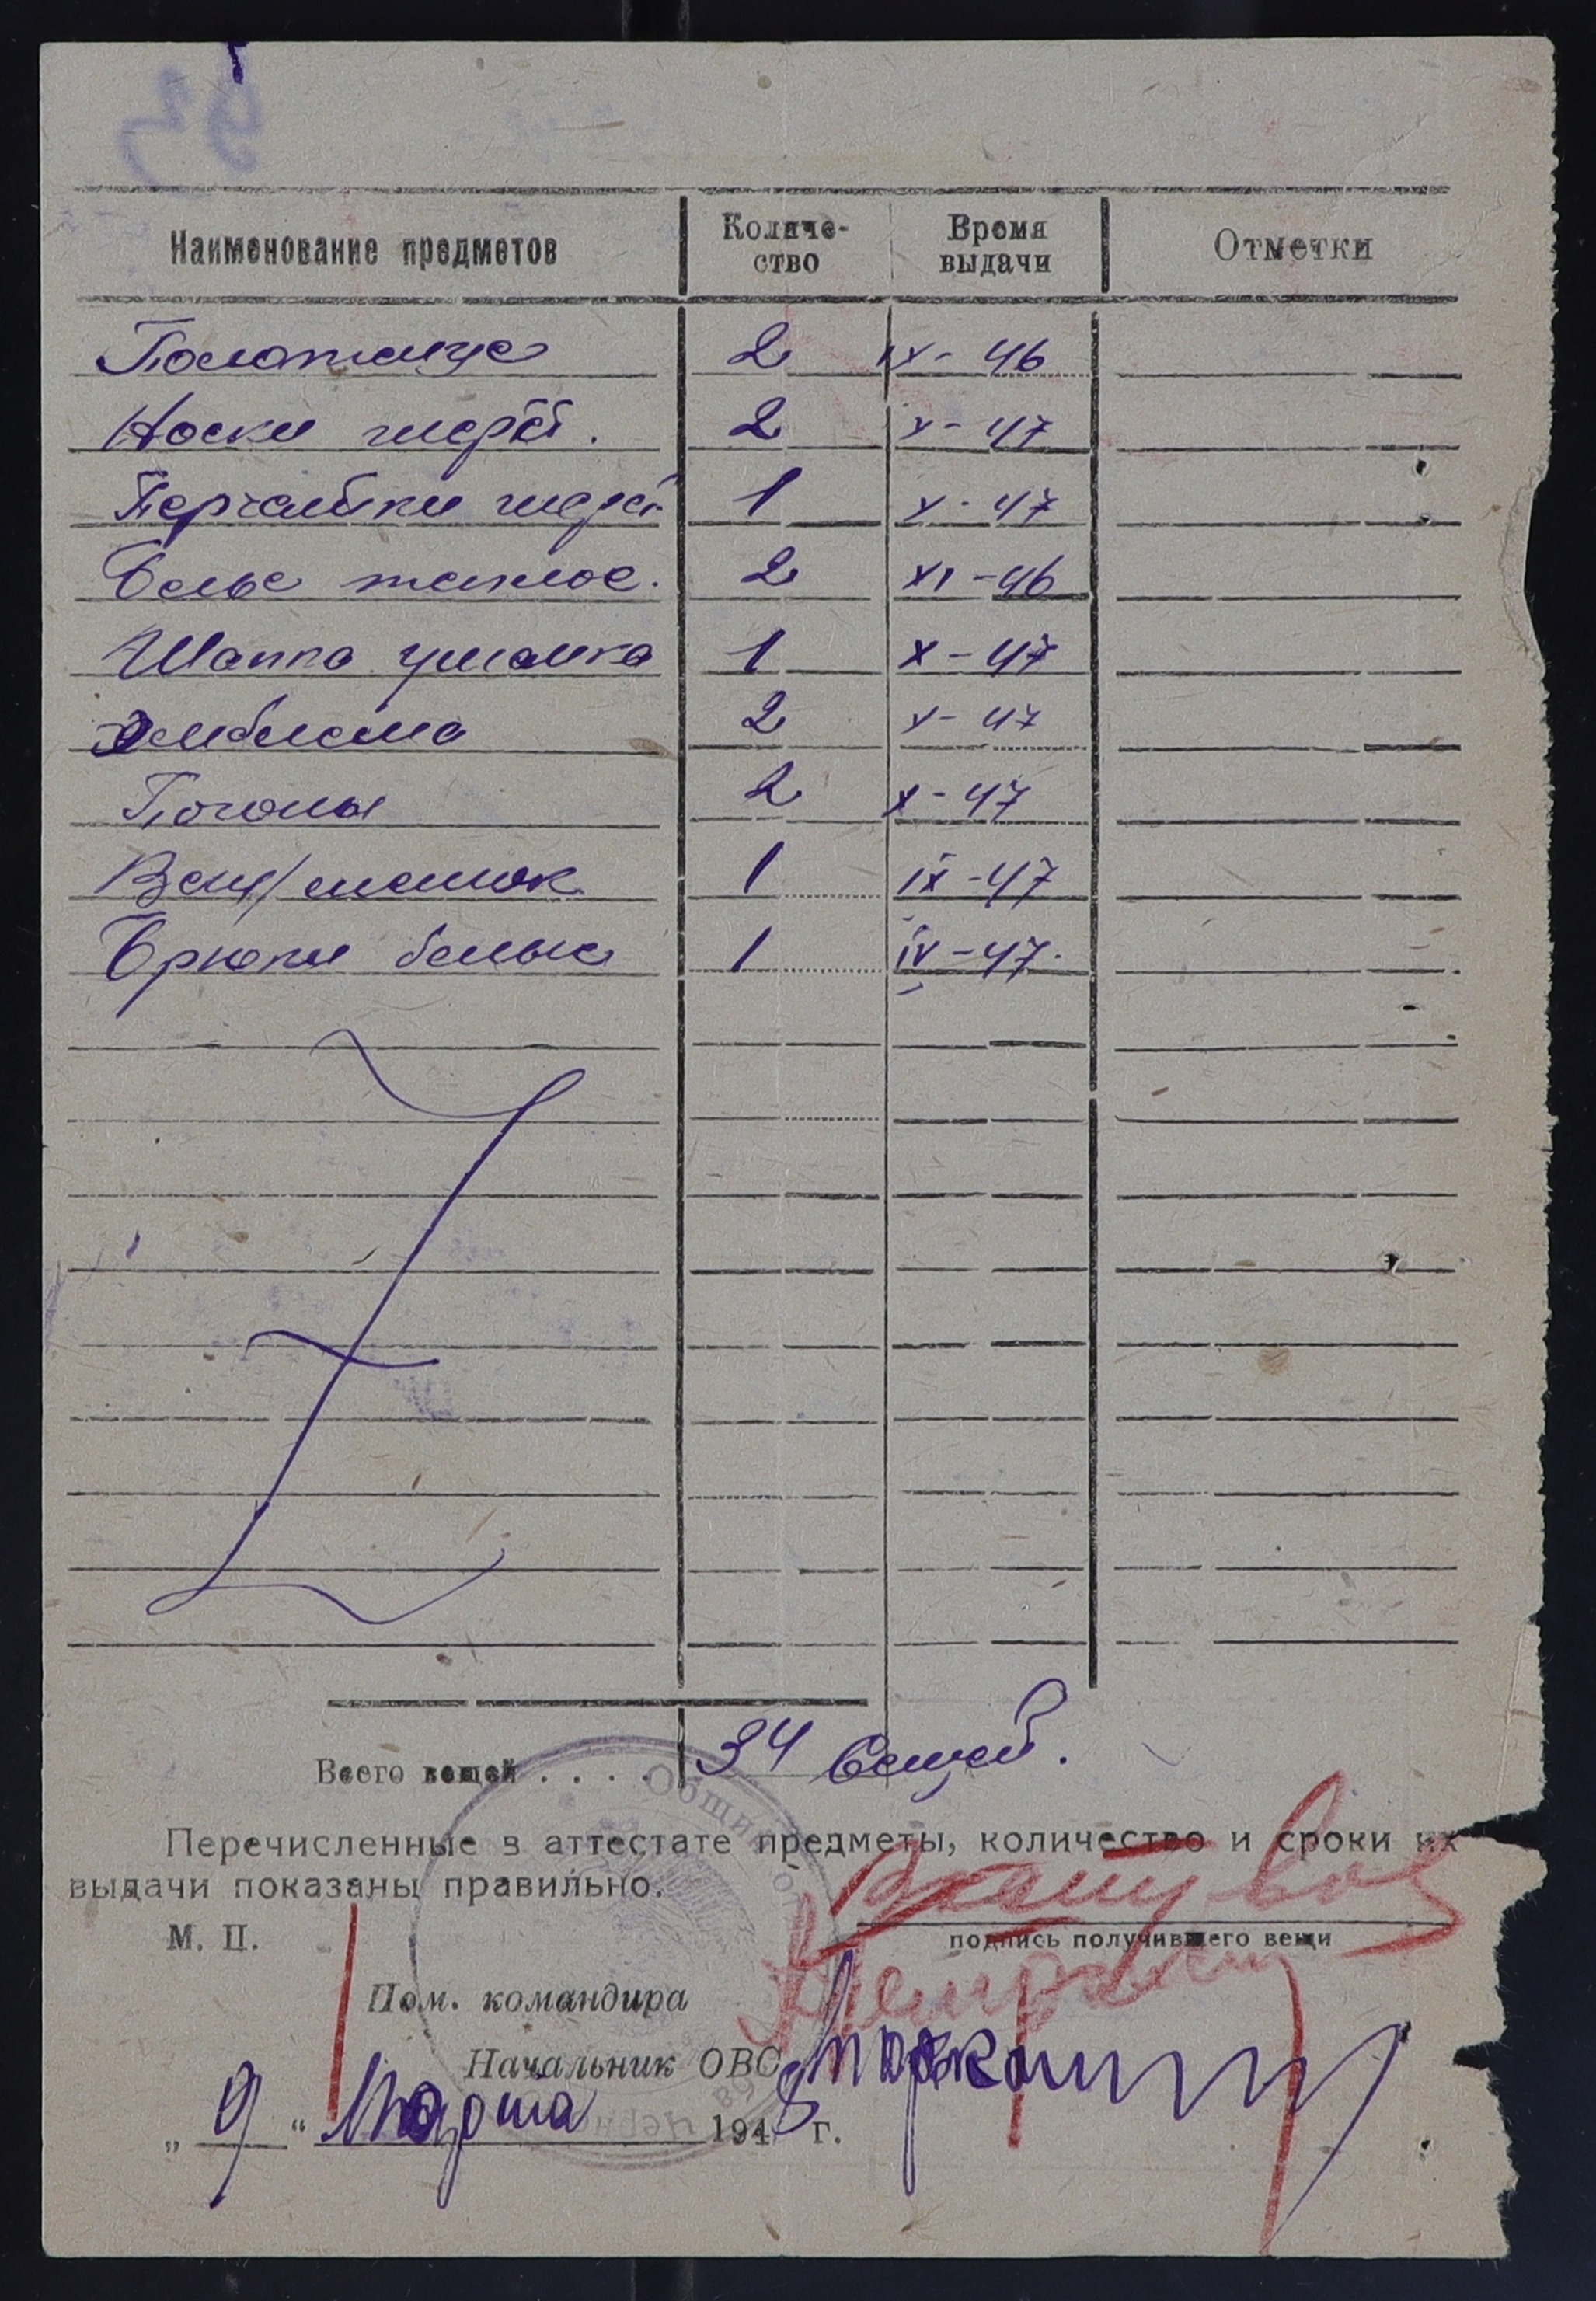 Наименование предметов Количе-ство Время выдачи Отметки
Полотенце 2 IX-46
Носки шерст. 2 X-47
Перчатки шерст 1 X-47
Белье теплое. 2 XI-46
Шапка ушанка 1 X-47
Эмблема 2 X-47
Погоны 2 X-47
Вещ/мешок 1 IX-47
Брюки белые 1 IV-47.
Всего вещей . . . . 34 вещей.
Перечисленные в аттестате предметы, количество и сроки их
выдачи показаны правильно.
М. П.
подпись получившего вещи
Пом. командира
Начальник ОВС
„ 9 “ Марта 1948 г.